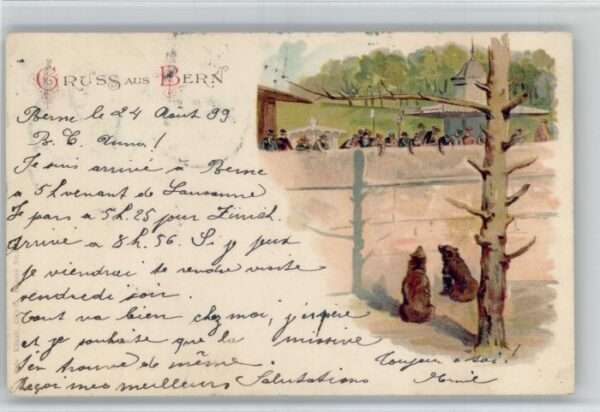 GRUSS AUS BERN
Berne le 24 Aout 99.
B. C. Anna!
Je suis arrivé à Berne
a 5 h venant de Lausanne
Je pars a 5 h. 25 pour Zürich.
Arrivé a 8 h. 56. Si je peux
je viendrai te rendre visite
vendredi soir.
Tout va bien chez moi, j'espère
et je souhaite que la missive
t'en trouve de même.
Reçois mes meilleurs Salutations
Toujours a toi!